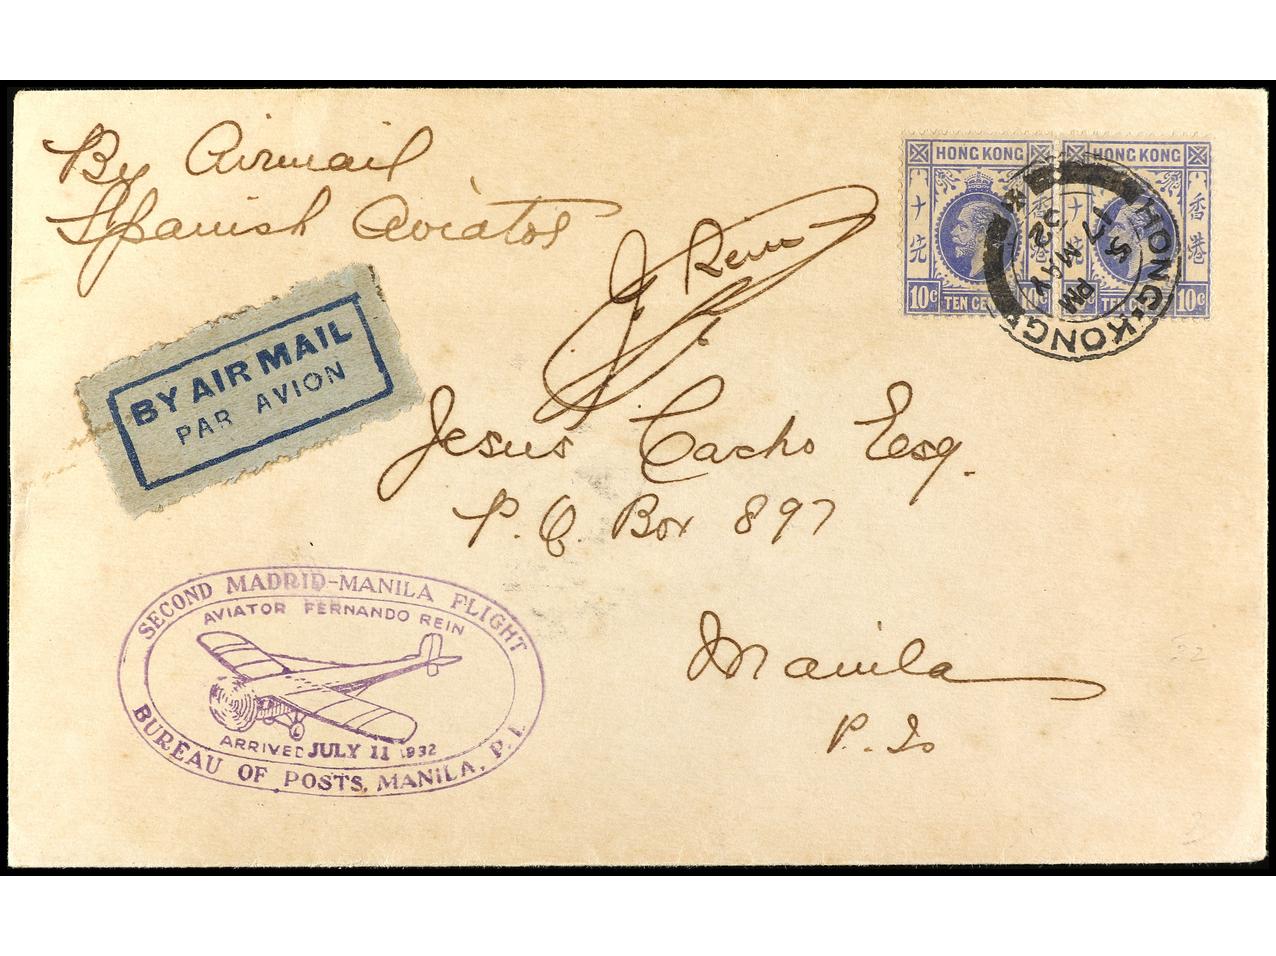 By Airmail
Spanish Aviator
HONG KONG
十先 香港
10c TEN CE 10c
HONG KONG
十 香港
10c TEN CEN 10c
HONG-KONG
5 PM
17 MAY
32
F. Rein
BY AIR MAIL
PAR AVION
Jesus Cacho Esq.
P.O. Box 897
Manila
P. Is
SECOND MADRID-MANILA FLIGHT
AVIATOR FERNANDO REIN
ARRIVED JULY 11 1932
BUREAU OF POSTS, MANILA, P. I.